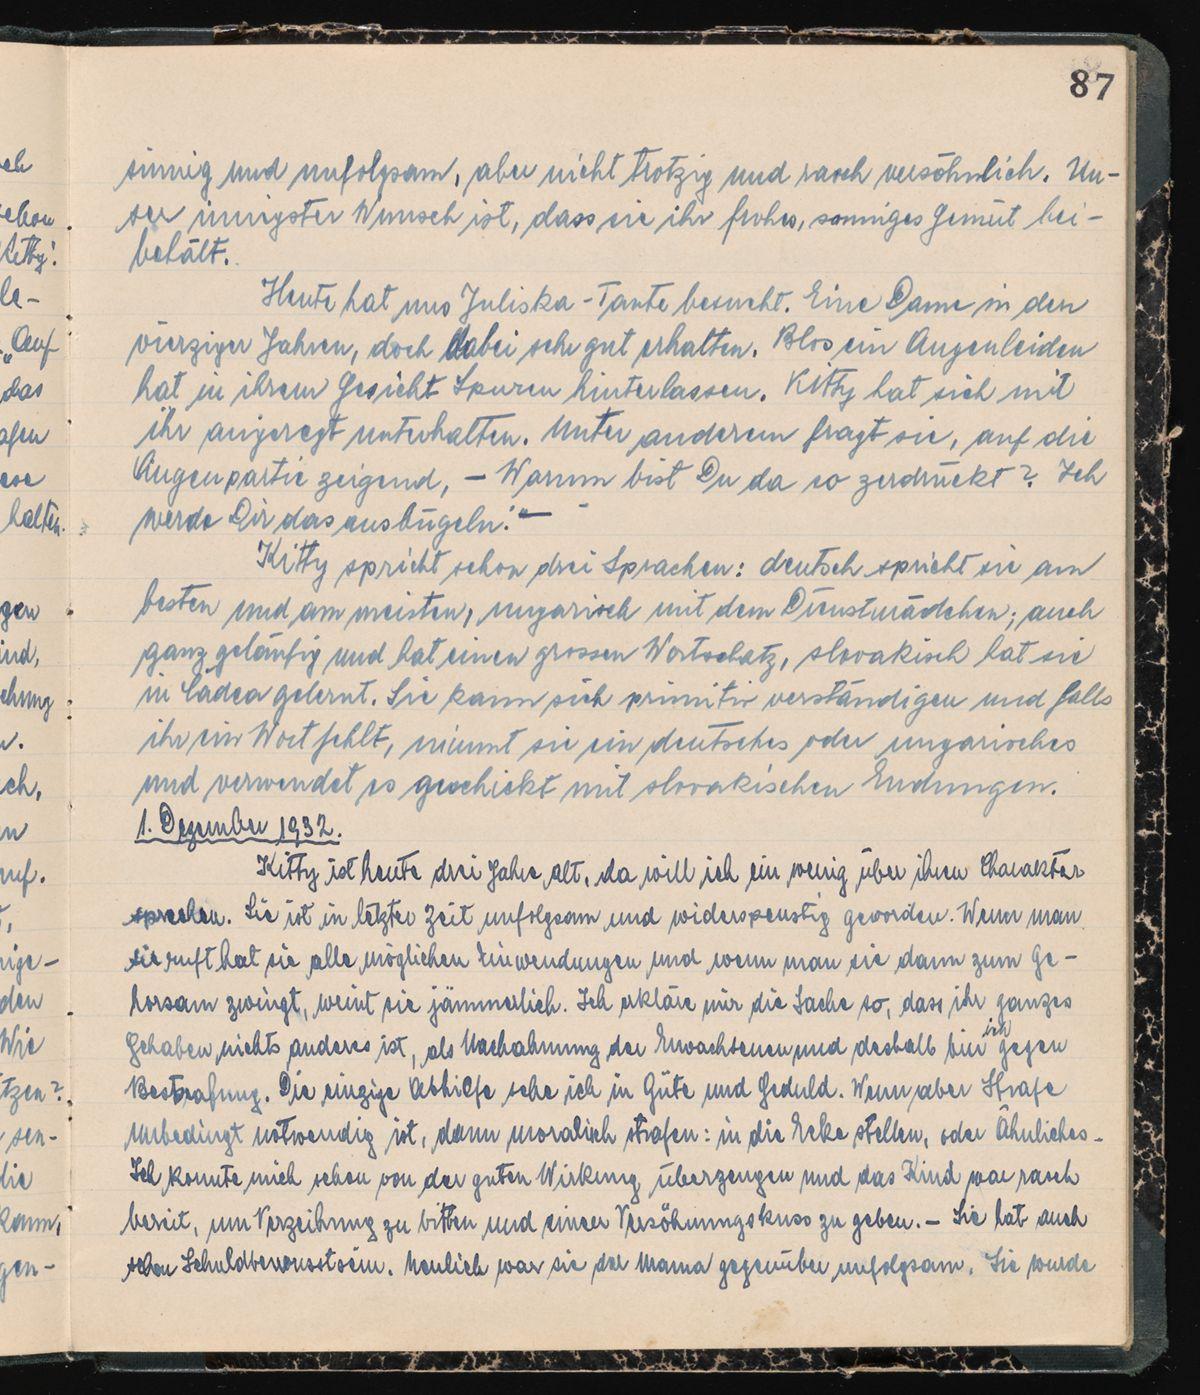 87
sinnig und unfolgsam, aber nicht trotzig und rasch versöhnlich. Un-
ser innigster Wunsch ist, dass sie ihr frohes, sonniges Gemüt bei-
behält.
Heute hat uns Juliska-Tante besucht. Eine Dame in den
vierziger Jahren, doch dabei sehr gut erhalten. Blos ein Augenleiden
hat in ihrem Gesicht Spuren hinterlassen. Kitty hat sich mit
ihr angeregt unterhalten. Unter anderem fragt sie, auf die
Augenpartie zeigend, — Warum bist Du da so zerdrückt? Ich
werde Dir das ausbügeln!" —
Kitty spricht schon drei Sprachen: deutsch spricht sie am
besten und am meisten, ungarisch mit dem Dienstmädchen; auch
ganz geläufig und hat einen grossen Wortschatz, slovakisch hat sie
in Čadca gelernt. Sie kann sich primitiv verständigen und falls
ihr ein Wort fehlt, nimmt sie ein deutsches oder ungarisches
und verwendet es geschickt mit slovakischen Endungen.
1. Dezember 1932.
Kitty ist heute drei Jahre alt, da will ich ein wenig über ihren Charakter
sprechen. Sie ist in letzter Zeit unfolgsam und widerspenstig geworden. Wenn man
sie ruft hat sie alle möglichen Einwendungen und wenn man sie dann zum Ge-
horsam zwingt, weint sie jämmerlich. Ich erkläre mir die Sache so, dass ihr ganzes
Gehaben nichts anderes ist, als Nachahmung der Erwachsenen und deshalb bin ich gegen
Bestrafung. Die einzige Abhilfe sehe ich in Güte und Geduld. Wenn aber Strafe
unbedingt notwendig ist, dann moralisch strafen: in die Ecke stellen, oder Ähnliches.
Ich konnte mich schon von der guten Wirkung überzeugen und das Kind war rasch
bereit, um Verzeihung zu bitten und einen Versöhnungskuss zu geben. — Sie hat auch
schon Schuldbewusstsein. Neulich war sie der Mama gegenüber unfolgsam. Sie wurde